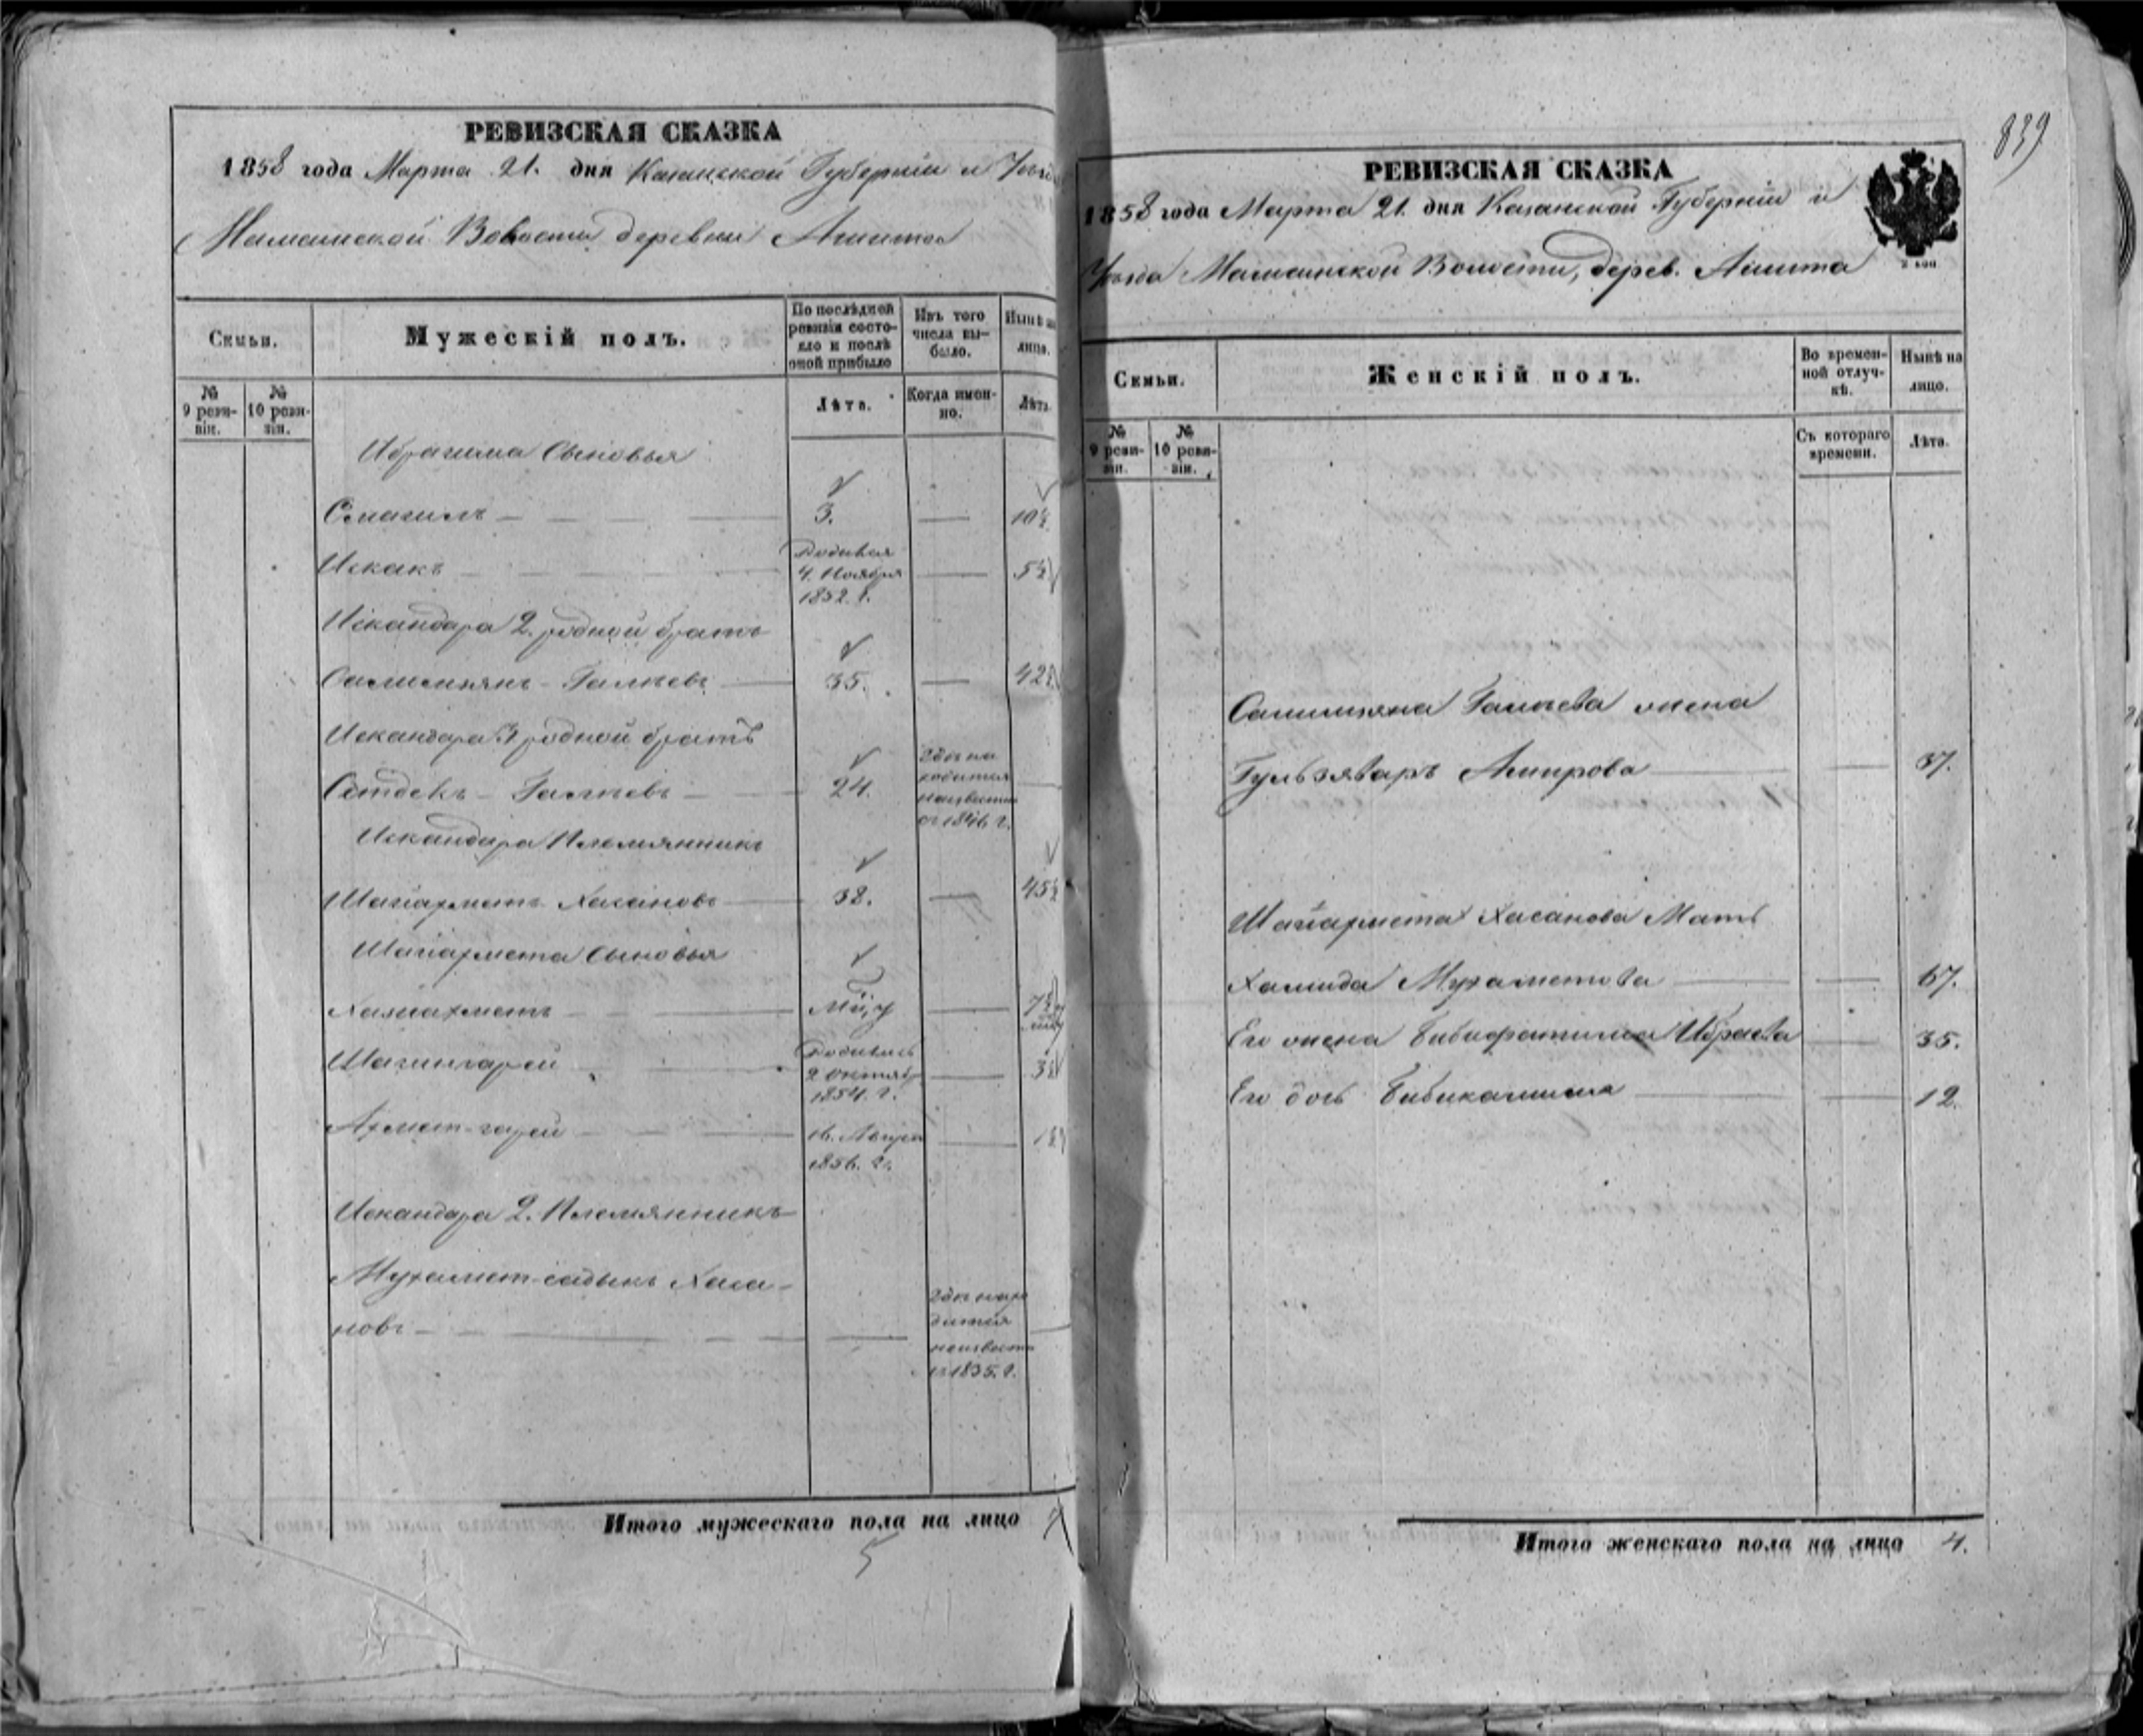 РЕВИЗСКАЯ СКАЗКА
1858 года Марта 21. дня Казанской Губерніи и Уѣзда
Мамсинской Волости деревни Ашита
Семьи.
Мужескій полъ.
По послѣдней ревизіи состояло и послѣ оной прибыло
Изъ того числа выбыло.
Нынѣ на лицо.
№ 9 ревизіи.
№ 10 ревизіи.
Лѣта.
Когда именно.
Лѣта.
Ибрагима Сыновья
Смагилъ 3. 10½
Искакъ Родився 4. Ноября 1852. г. 5½
Искандара 2. родной братъ
Салимьянъ Галѣевъ 35. 42½
Искандара 3 родной братъ
Сѣтдекъ Галѣевъ 24. Гдѣ находится неизвѣстно съ 1846 г.
Искандара Племянникъ
Шагіахметъ Хасановъ 38. 45½
Шагіахмета Сыновья
Халиахметъ 7½
Шагингарей Родився 2 Октября 1854. г. 3½
Ахмет-гарей 16. Августа 1856. г. 1½
Искандара 2. Племянникъ
Мухамет-садыкъ Хаса-
новъ Гдѣ находится неизвѣстно съ 1835. г.
Итого мужескаго пола на лицо 7
5
839
РЕВИЗСКАЯ СКАЗКА
1858 года Марта 21. дня Казанской Губерніи и
Уѣзда Мамсинской Волости, дерев. Ашита
Семьи.
Женскій полъ.
Во временной отлучкѣ.
Нынѣ на лицо.
№ 9 ревизіи.
№ 10 ревизіи.
Съ котораго времени.
Лѣта.
Салимьяна Галѣева жена
Гульзяваръ Амирова 37.
Шагіахмета Хасанова Мать
Хамида Мухаметова 67.
Его жена Бибифатима Ибраева 35.
Его дочь Бибикамиля 12.
Итого женскаго пола на лицо 4.